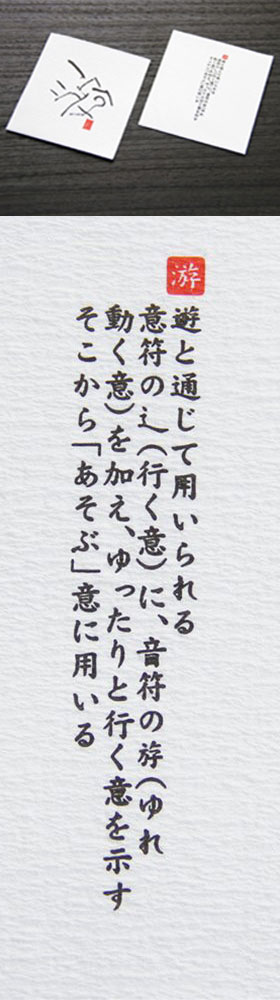 游
遊と通じて用いられる
意符の辶(行く意)に、音符の斿(ゆれ
動く意)を加え、ゆったりと行く意を示す
そこから「あそぶ」意に用いる